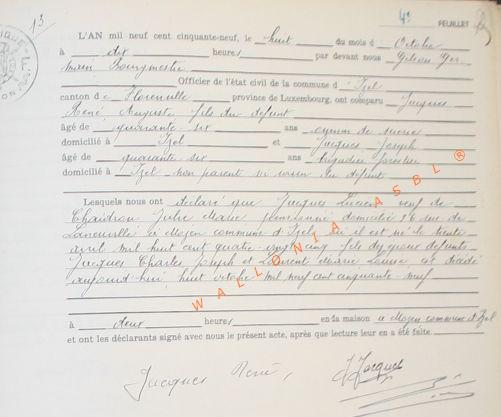 13 4e FEUILLET
L'AN mil neuf cent cinquante-neuf, le huit du mois d'Octobre
à dix heures par devant nous Gédéon
Bourgmestre
Officier de l'état civil de la commune d'Izel
canton de Florenville province de Luxembourg, ont comparu Jacques
René Auguste fils du défunt
âgé de quarante six ans
domicilié à Izel et Jacques Joseph
âgé de quarante six ans brigadier forestier
domicilié à Izel non parent ni voisin du défunt
Lesquels nous ont déclaré que Jacques Lucien veuf de
Chaidron Julie Marie domicilié 26 rue de
à Moyen commune d'Izel où il est né le trente
avril mil huit cent quatre-vingt cinq fils des époux défunts
Jacques Charles Joseph et Laurent Marie Louise est décédé
aujourd'hui huit octobre mil neuf cent cinquante-neuf
à deux heures en la maison à Moyen commune d'Izel
et ont les déclarants signé avec nous le présent acte, après que lecture leur en a été faite
Jacques René, J Jacques
WALLONIA ASBL ®